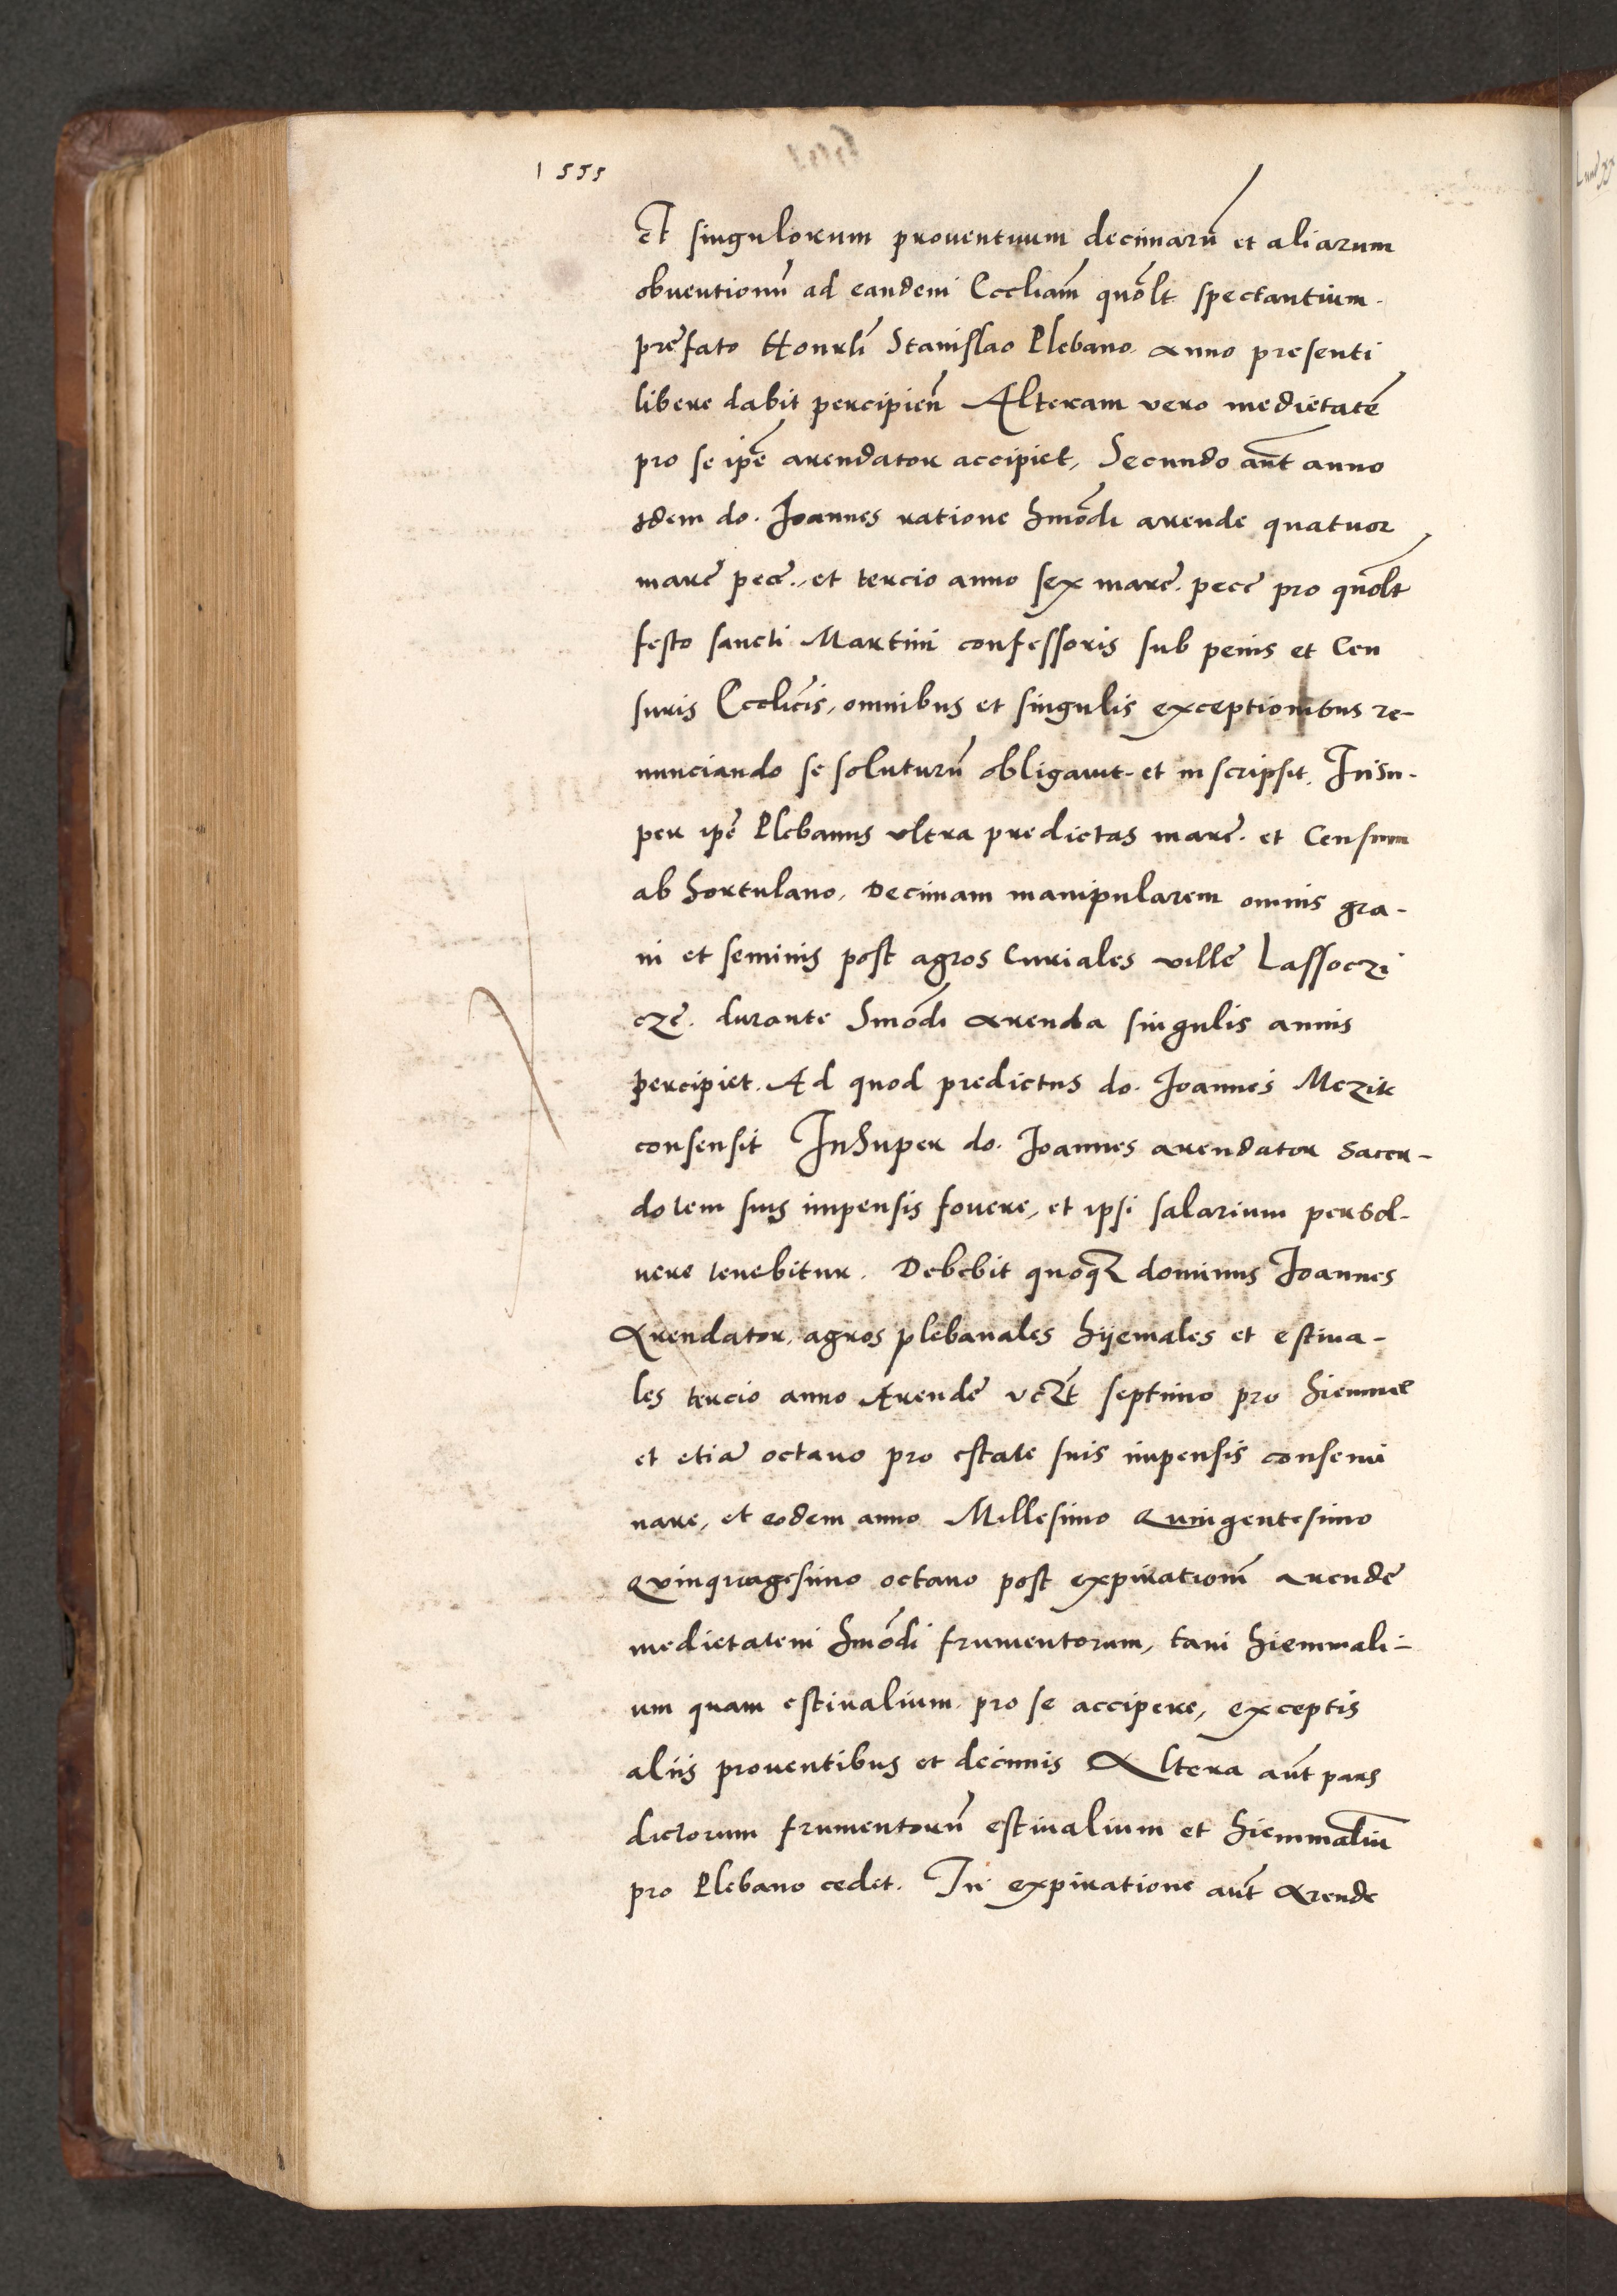 1555
Et singulorum prouentuum decimarū et aliarum
obuentionū ad eandem Eccliam̄ quōlt spectantium.
prefato Honrli Stanislao Plebano anno presenti
libere dabit percipien̄ Alteram vero medietatē
pro se ipē arendator accipiet, Secundo aut̄ anno
Idem do. Joannes ratione hmōdi arende quatuor
marc̄ pec̄. et tercio anno sex marc̄. pecc̄ pro quōlt
festo sancti Martini confessoris sub penis et Cen
suris Ecclicis, omnibus et singulis exceptionibus re-
nunciando se soluturū obligauit et inscripsit. Insu-
per ipē Plebanus vltra predictas marc̄. et Censum
ab hortulano, Decimam manipularem omnis gra-
ni et seminis post agros Curiales ville Lassoczi
cze. durante hmōdi arenda singulis annis
percipiet. Ad quod predictus do. Joannes Mezik
consensit InSuper do. Joannes arendator Sacer-
dotem suis impensis fouere, et ipsi salarium persol-
uere tenebitur. Debebit quoqz dominus Joannes
Arendator, agros plebanales hijemales et estiua-
les tercio anno Arende vczt septimo pro hiemme
et etiā octauo pro estate suis impensis consemi
nare, et eodem anno Millesimo Quingentesimo
Quinquagesimo octauo post expirationē arende
medietatem hmōdi frumentorum, tam hiemmali-
um quam estiualium pro se accipere, exceptis
aliis prouentibus et decimis Altera aut̄ pars
dictorum frumentorū estiualium et hiemmaliū
pro Plebano cedet. In expiratione aut̄ Arende